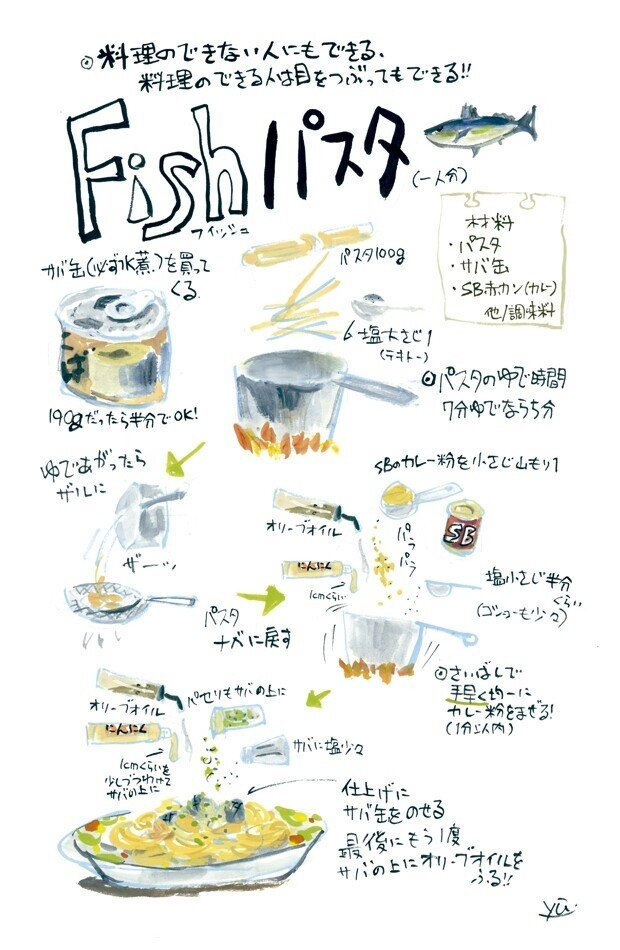 ◎料理のできない人にもできる、
料理のできる人は目をつぶってもできる!!
Fishパスタ
フィッシュ
(一人分)
材料
・パスタ
・サバ缶
・SB赤カン(カレー)
他/調味料
サバ缶(必ず水煮)を買って
くる
190gだったら半分でOK!
パスタ100g
塩大さじ1
(テキトー)
◎パスタのゆで時間
7分ゆでなら5分
ゆであがったら
ザルに
ザーッ
パスタ
ナベに戻す
SBのカレー粉を小さじ山もり1
オリーブオイル
にんにく
1cmくらい
パッ
パッ
SB
塩小さじ半分
くらい
(コショーも少々)
◎さいばしで
手早く均一に
カレー粉をまぜる!
(1分以内)
オリーブオイル
にんにく
1cmくらいを
少しづつわけて
サバの上に
パセリもサバの上に
サバに塩少々
仕上げに
サバ缶をのせる
最後にもう1度
サバの上にオリーブオイルを
ふる!!
yü.